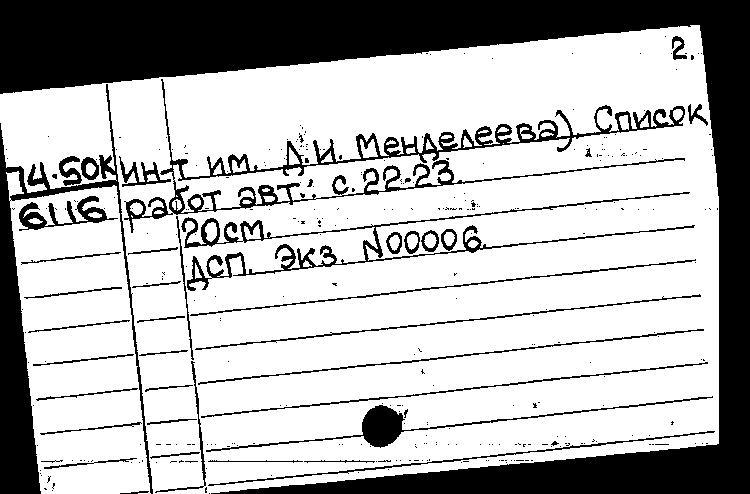 2.
74-50к ин-т им. Д.И. Менделеева). Список
6116 работ авт.: с.22-23.
20см.
ДСП. Экз. N00006.